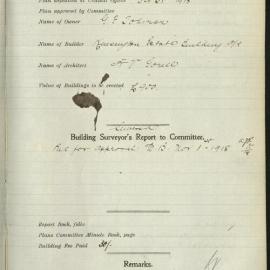 Plan deposited at Council Office Oct 31 1918
Plan approved by Committee
Name of Owner G. E. Tolman
Name of Builder Kensington Estate Building
Name of Architect A. T.
Value of Buildings to be erected £900
Building Surveyor's Report to Committee.
for approval B. Nov 1st 1918
Report Book, folio
Plans Committee Minute Book, page
Building Fee Paid 30/-
Remarks.